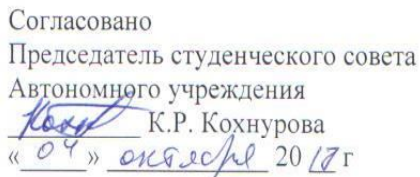 Согласовано
Председатель студенческого совета
Автономного учреждения
К.Р. Кохнурова
« 04 » октября 2017 г